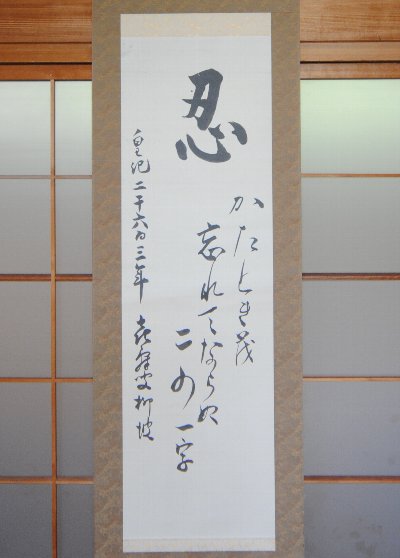 忍
かたとき茂
忘れてならぬ
この一字
皇紀二千六百三年